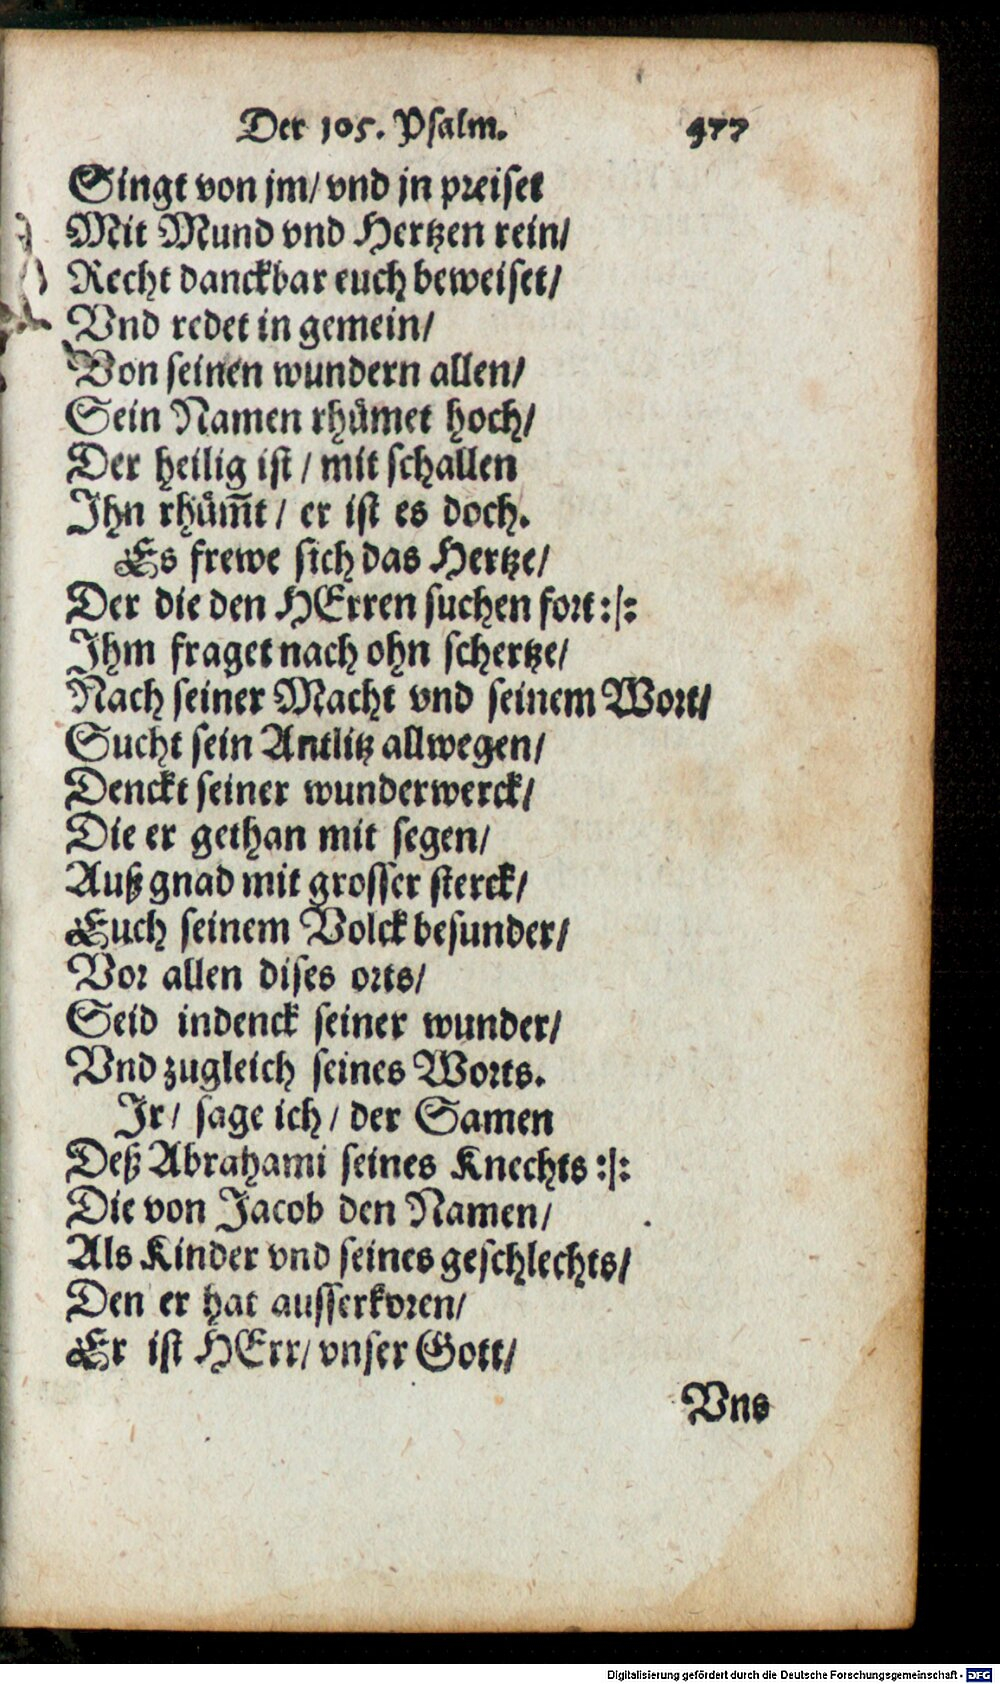 Der 105. Psalm. 477
Singt von jm/ vnd jn preiset
Mit Mund vnd Hertzen rein/
Recht danckbar euch beweiset/
Vnd redet in gemein/
Von seinen wundern allen/
Sein Namen rhuͤmet hoch/
Der heilig ist / mit schallen
Ihn rhuͤm̃t / er ist es doch.
Es frewe sich das Hertze/
Der die den HErren suchen fort :/:
Ihm fraget nach ohn schertze/
Nach seiner Macht vnd seinem Wort/
Sucht sein Antlitz allwegen/
Denckt seiner wunderwerck/
Die er gethan mit segen/
Auß gnad mit grosser sterck/
Euch seinem Volck besunder/
Vor allen dises orts/
Seid indenck seiner wunder/
Vnd zugleich seines Worts.
Ir/ sage ich / der Samen
Deß Abrahami seines Knechts :/:
Die von Jacob den Namen/
Als Kinder vnd seines geschlechts/
Den er hat ausserkoren/
Er ist HErr/ vnser Gott/
Vns
Digitalisierung gefördert durch die Deutsche Forschungsgemeinschaft - DFG